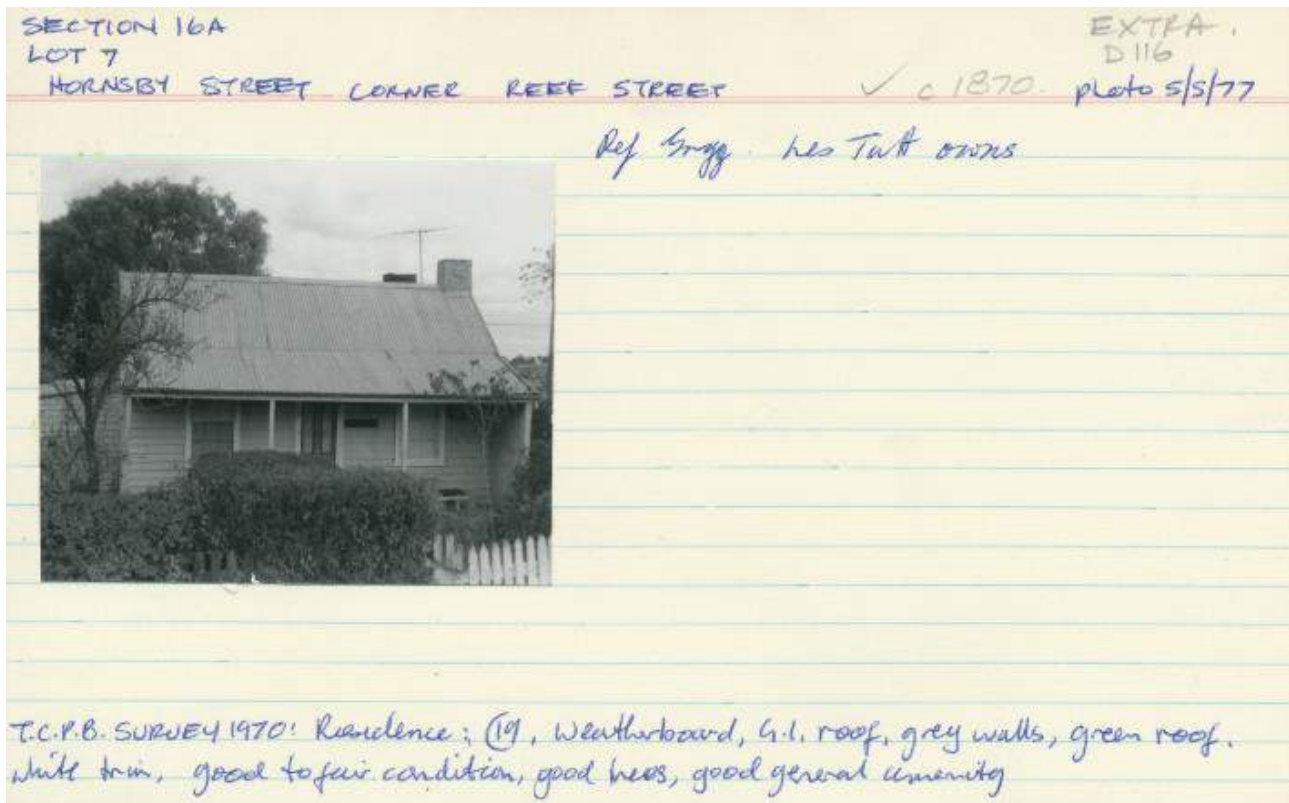 SECTION 16A
EXTRA.
LOT 7
D116
HORNSBY STREET CORNER REEF STREET
✓ c 1870. photo 5/5/77
Ref Les Tutt owns
T.C.P.B. SURVEY 1970: Residence; 19, Weatherboard, G.I. roof, grey walls, green roof.
white trim, good to fair condition, good trees, good general amenity